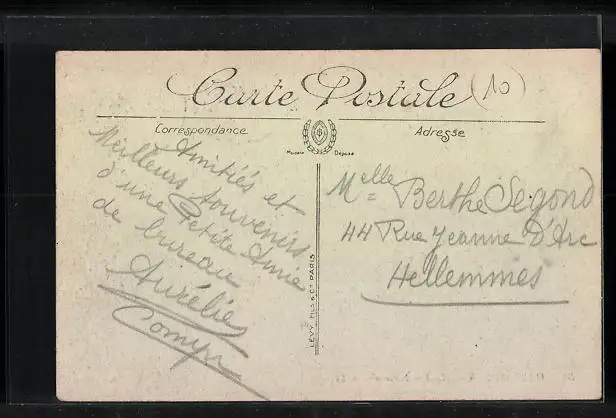 Carte Postale (10)
Correspondance
Adresse
Modèle Déposé
Amitiés et
Meilleurs souvenirs
d'une Petite Amie
de bureau
Aurélie
LÉVY FILS & Cie PARIS
Melle Berthe Segond
44 Rue Jeanne D'Arc
Hellemmes